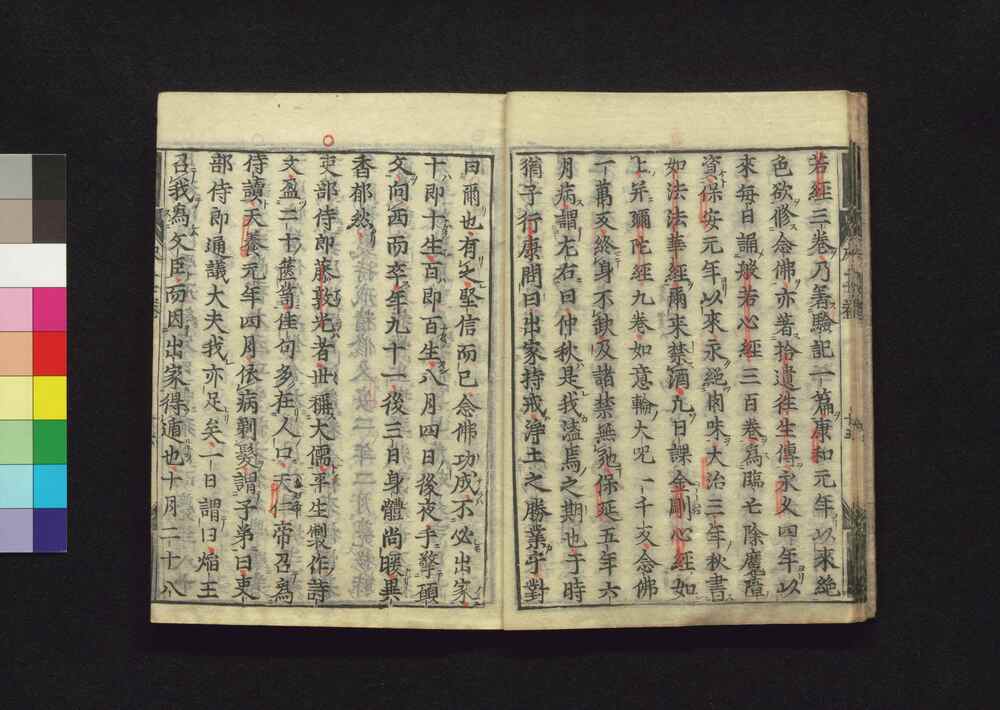 若經三卷乃著驗記一篇康和元年以來絶
色欲修念佛亦著拾遺往生傳永久四年以
來每日誦般若心經三百卷爲臨亡除魔障
資保安元年以來永絶肉味大治三年秋書
如法法華經爾來禁酒九日課金剛心經如
上并彌陀經九卷如意輪大呪一千反念佛
一萬反終身不欽及諸禁無弛保延五年六
月病謂左右曰仲秋是我溘焉之期也于時
猶子行康問曰出家持戒淨土之勝業乎對
曰爾也有之堅信而已念佛功成不必出家
十即十生百即百生八月四日後夜手擎願
文向西而卒年九十一後三日身體尚暖異
香郁然
吏部侍郎藤敦光者世稱大儒平生製作詩
文盈二十舊笥佳句多在人口天仁帝召爲
侍讀天養元年四月依病剃髮謂子弟曰吏
部侍郎通議大夫我亦足矣一日謂曰焔王
召我為文臣而因出家得遁也十月二十八